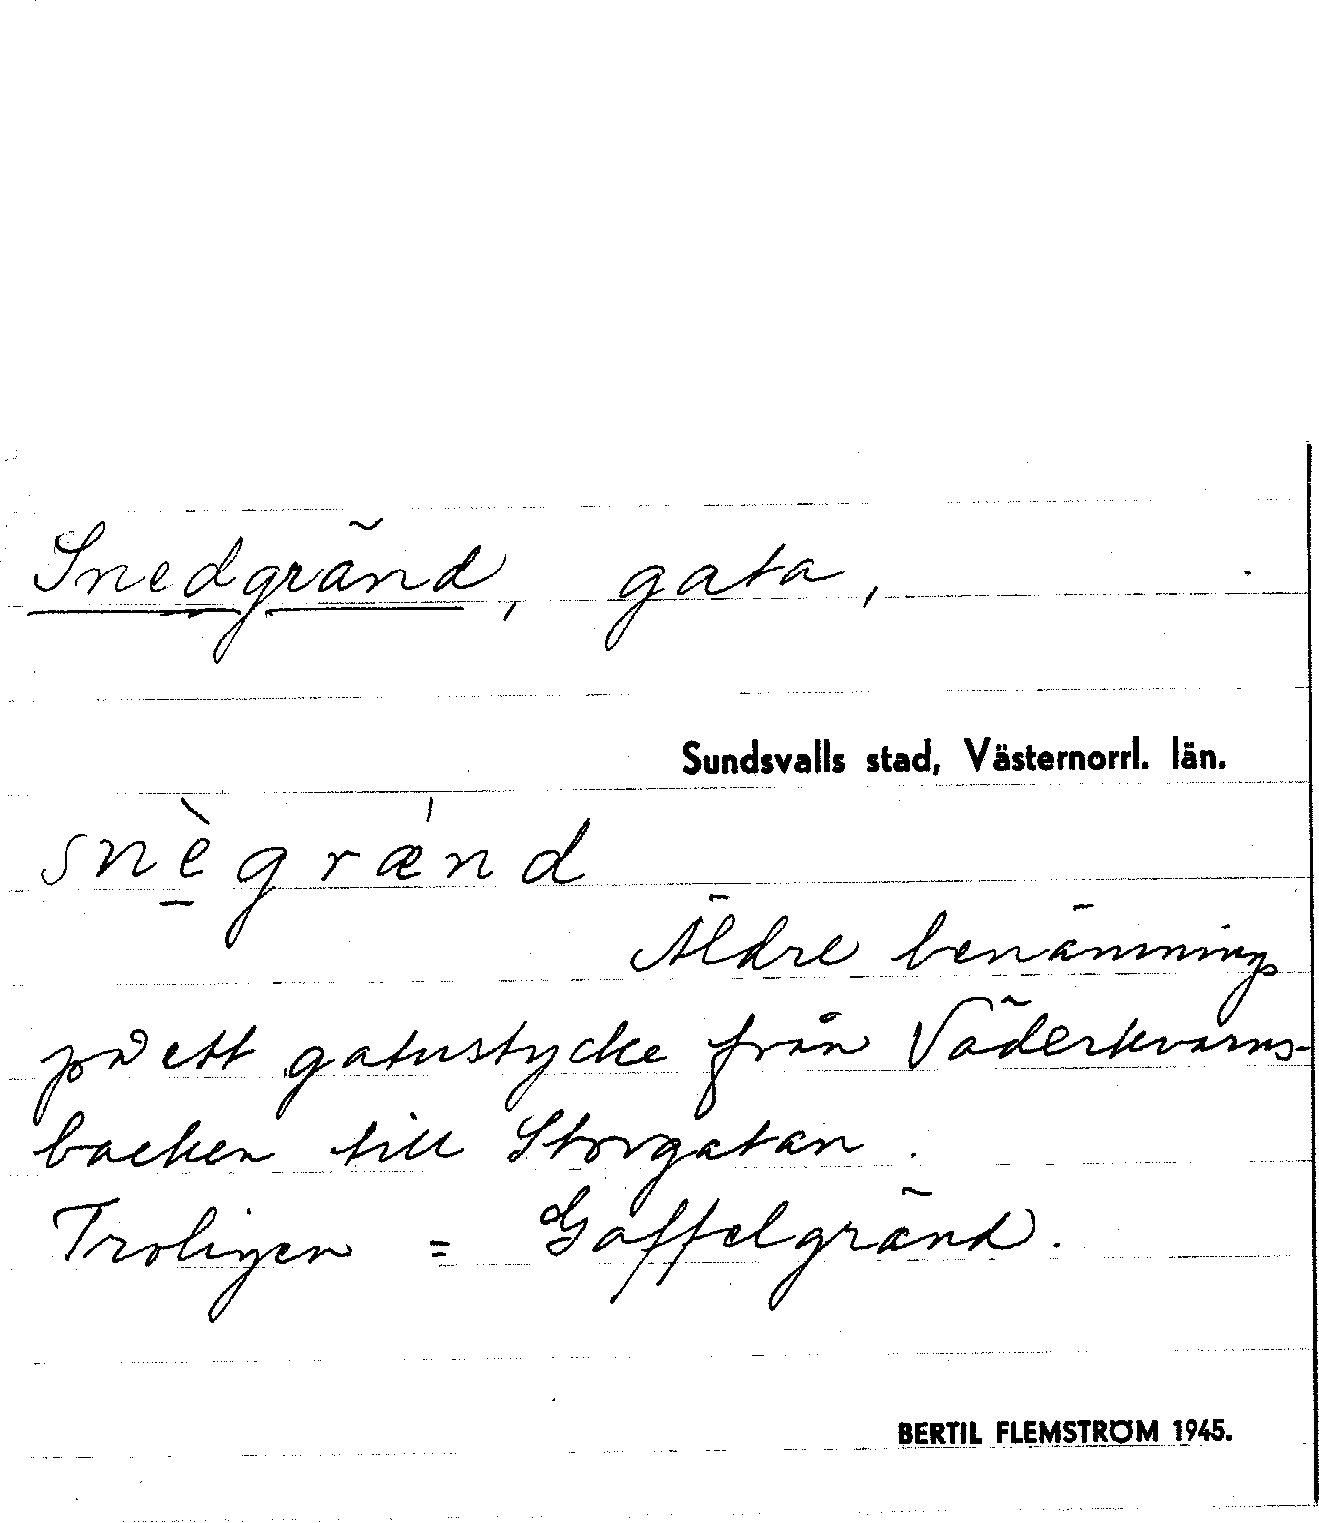 Snedgränd, gata,
Sundsvalls stad, Västernorrl. län.
snè̱grǽnd
Äldre benämning
på ett gatustycke från Väderkvarns-
backen till Storgatan.
Troligen = Gaffelgränd.
BERTIL FLEMSTRÖM 1945.